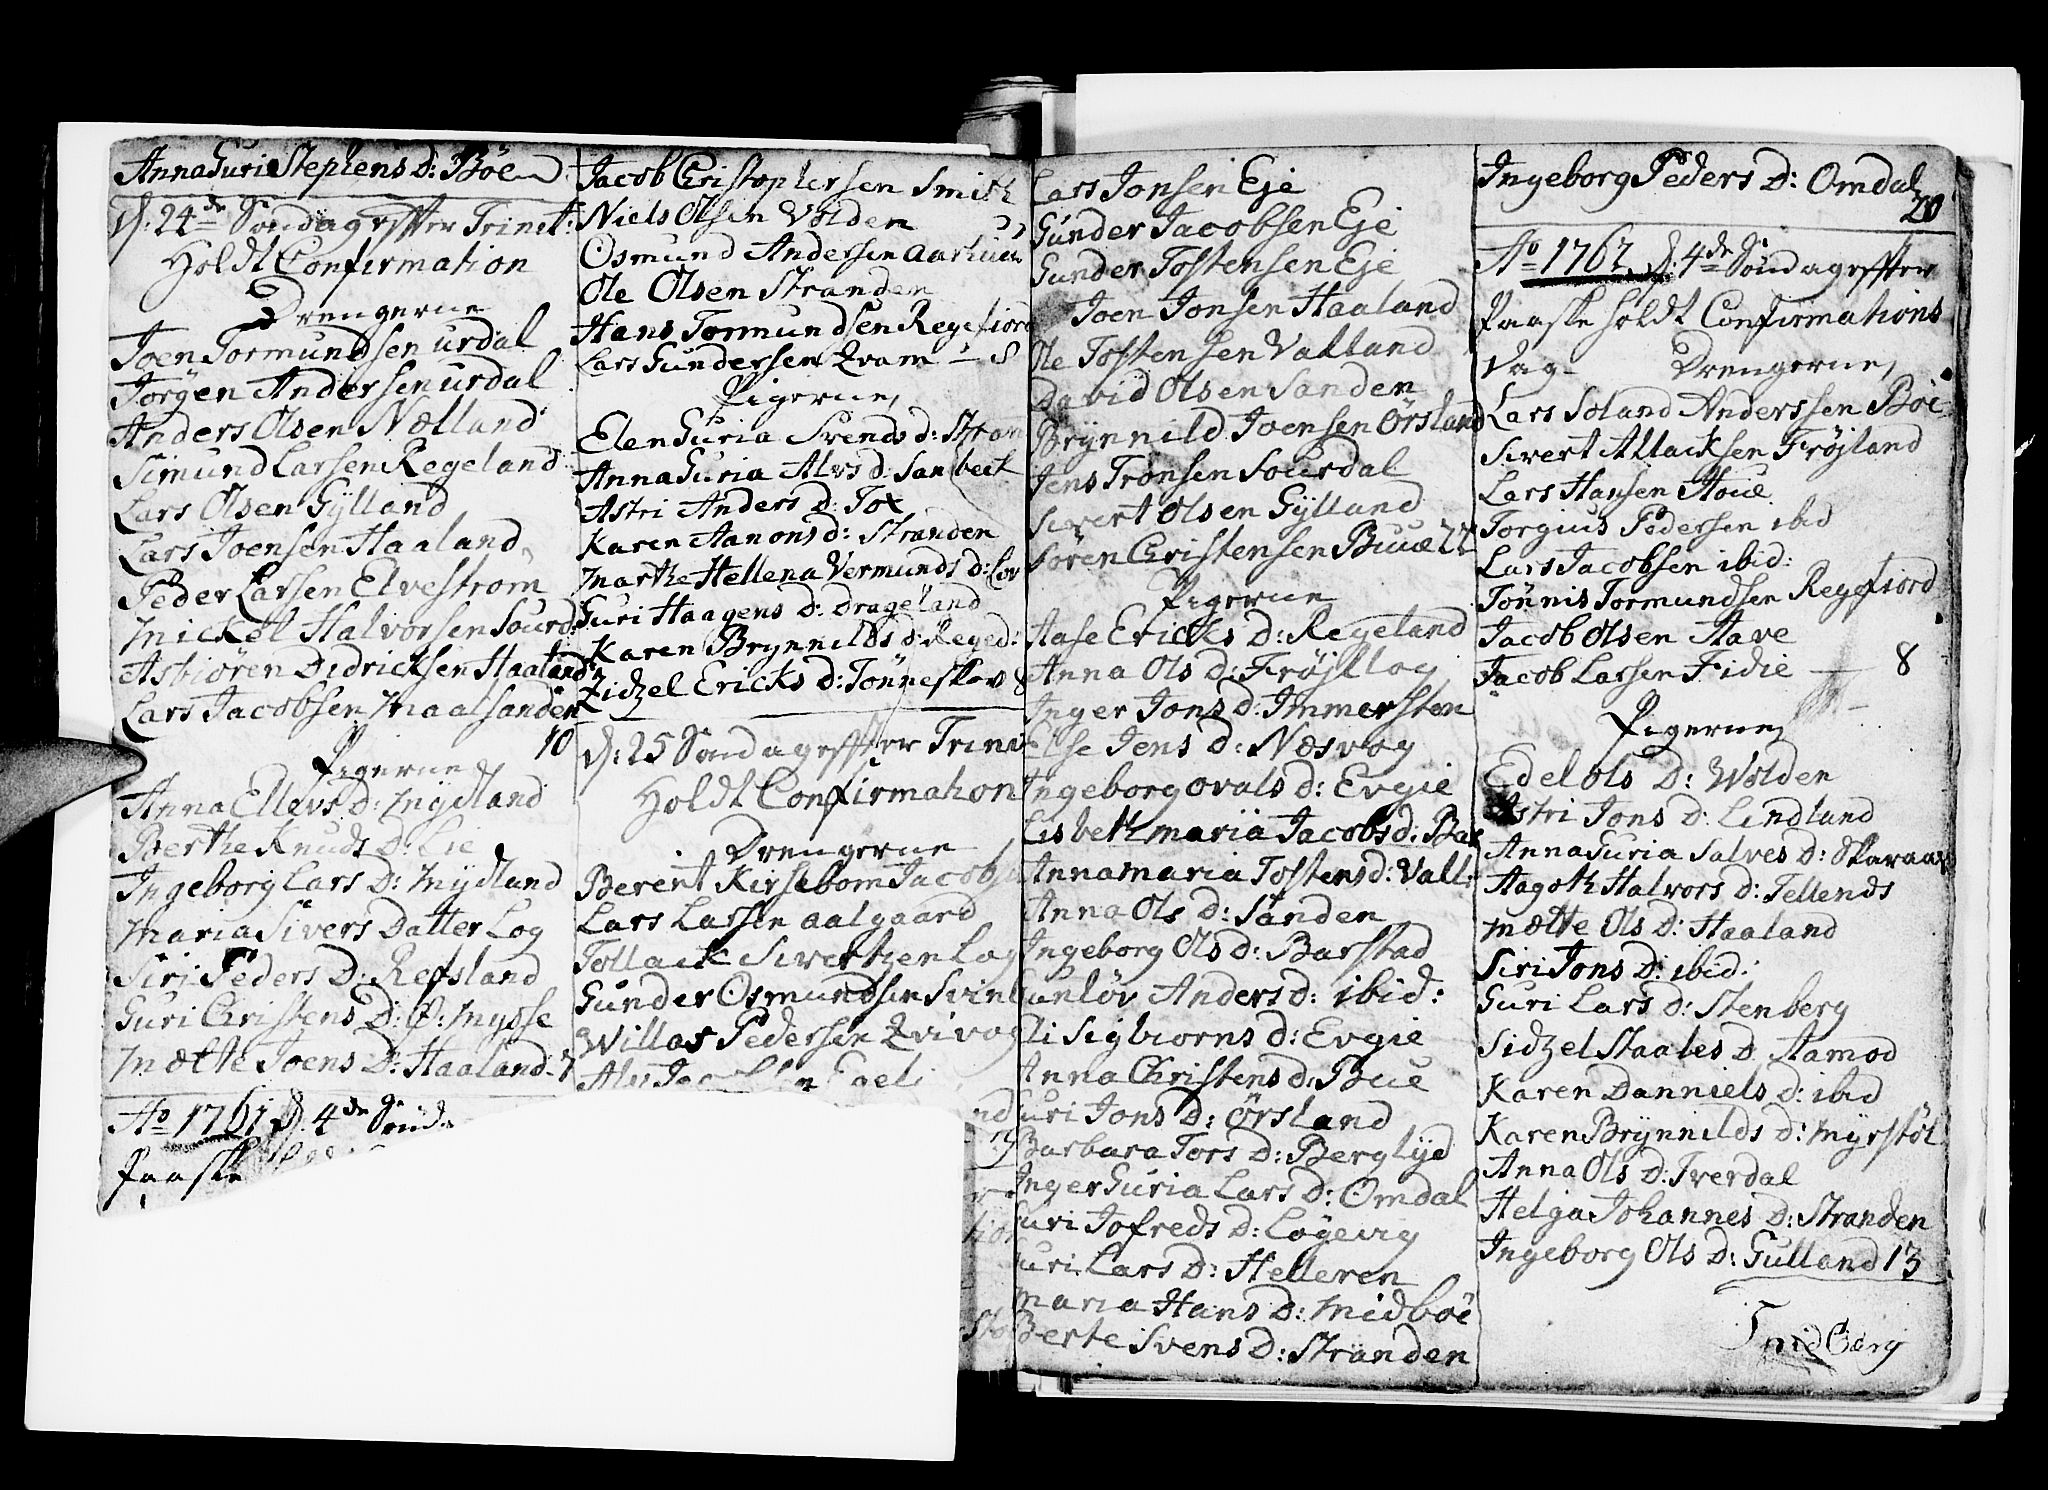 Anna Guria Stephens D: Böe
d: 24de Söndag effter Trinit:
Holdt Confirmation
Drengerne
Joen Tormundsen urdal
Jörgen Andersen urdal
Anders Olsen Nælland
Simund Larsen Regeland
Lars Olsen Gÿlland
Lars Joensen Haaland
Peder Larsen Elvestrøm
Mickel Halvorsen Sourd:
Asbiören Didricksen Haaland
Lars Jacobsen Maalsanden
10
Pigerne
Anna Ellevs D: Mÿdland
Berthe Knuds D: Lie
Ingeborg Lars D: Mÿdland
Maria Sivers Datter Log
Siri Peders D: Refsland
Guri Christens D: Ø: Mÿsse
Mætte Joens D: Haaland 7
Ao 1761 d. 4de Sönd
Paaske
Jacob Christophersen Smith
Niels Olsen Volden
Osmund Andersen Aarhuus
Ole Olsen Stranden
Hans Tormundsen Regefiord
Lars Gundersen Qvam 8
Pigerne
Elen Guria Svends d: Strom
Anna Guria Alvs d: Sanbeck
Astri Anders D: Tox
Karen Aanons d: Stranden
Marthe Hellena Vermunds d: Lov
Guri Haagens D: Drageland
Karen Brynnilds d: Reged:
Zidzel Ericks d: Tönneskov 8
d: 25 Söndag effter Trinit
Holdt Confirmation
Drengerne
Berent Kirsebom Jacobse
Lars Larsen Aalgaard
Tollack Sivertzen Log
Gunder Osmundsen Svinl
Willas Pedersen Qvivog
Lars Jonsen Eje
Gunder Jacobsen Eje
Gunder Tostensen Eje
Joen Jonsen Haaland
Ole Tostensen Valland
David Olsen Sanden
Brÿnnild Joensen Örsland
Jens Tronsen Sourdal
Sivert Olsen Gÿlland
Sören Christensen Buue 22
Pigerne
Aase Ericks D: Regeland
Anna Ols D: Fröjllog
Inger Jons D: Immersten
Else Jens D: Næsvog
Ingeborg Ovals d: Evgie
Lisbeth Maria Jacobs d: Bar
Anna Maria Tostens d: Vall:
Anna Ols D: Sanden
Ingeborg Ols d: Barstad
Gunlöv Anders d: ibid:
Eli Sigbiorns d: Evgie
Anna Christens d: Bue
Guri Jons D: Örsland
Barbara Tors D: Berglÿd
Inger Guria Lars D: Omdal
Guri Jofreds D: Logevig
Guri Lars D: Helleren
Maria Hans D: Midböe
Berte Svens D: Stranden
Ingeborg Peders D: Omdal
20
Ao 1762 d. 4de Söndag effter
Paaske holdt Confirmations
Dag Drengerne
Lars Soland Anderssen Böe
Sivert Atlacksen Fröjland
Lars Hansen Houe
Torgius Pedersen ibid
Lars Jacobsen ibid:
Tönnis Tormundsen Regefiord
Jacob Olsen Stave
Jacob Larsen Fidie 8
Pigerne
Edel Ols D: Wolden
Astri Jons D: Lindland
Anna Guria Salves D: Skaraas
Aagoth Halvors d: Tellends
Mætte Ols D: Haaland
Siri Jons D: ibid:
Guri Lars D: Stenberg
Sidzel Staales D Aamod
Karen Danniels d: ibid
Karen Brÿnnilds d: Mÿrstöl
Anna Ols D: Tverdal
Helga Johannes D: Stranden
Ingeborg Ols D: Gulland 13